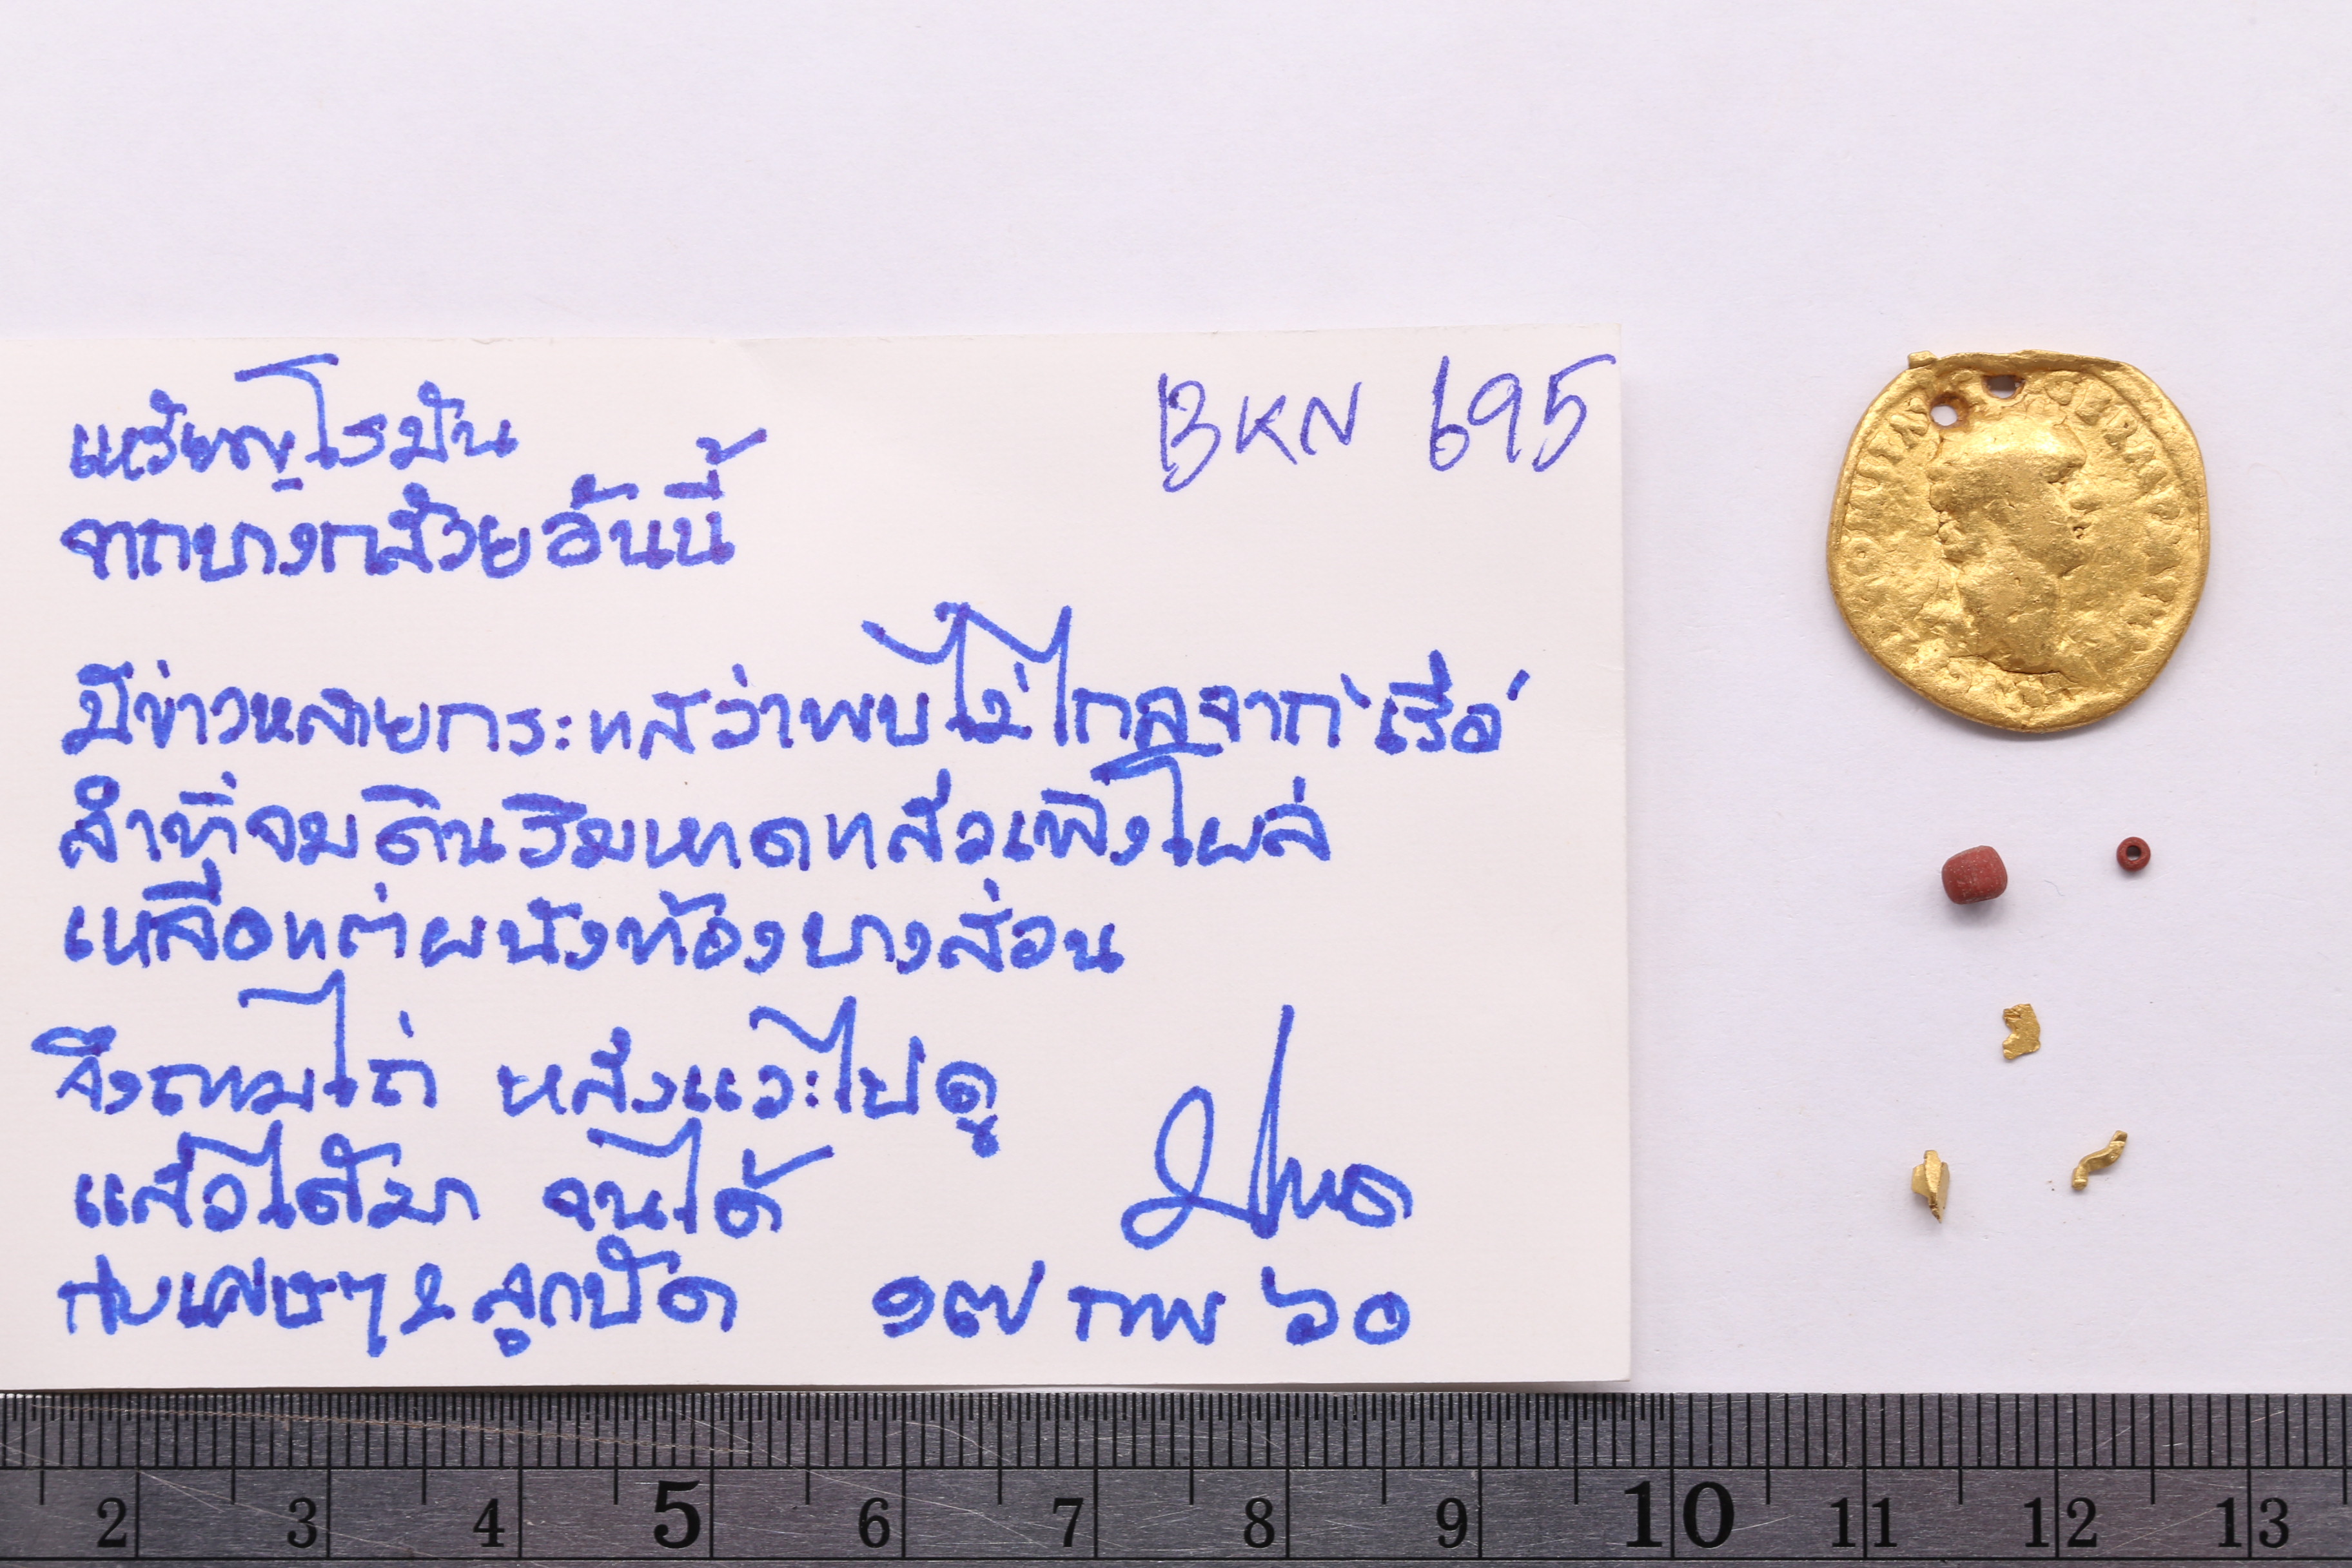 เหรียญโรมัน
BKN 695
จากบางกล้วยอันนี้
มีข่าวหลายกระแสว่าพบไม่ไกลจาก 'เรือ'
ลำที่จมดินริมหาดแล้วเพิ่งโผล่
เหลือแต่ผนังท้องบางส่วน
จึงตามไถ่ หลังแวะไปดู
แล้วได้มา จนได้
กับเศษๆ 2 ลูกปัด
๑๗ กพ ๖๐
GERM
2 3 4 5 6 7 8 9 10 11 12 13